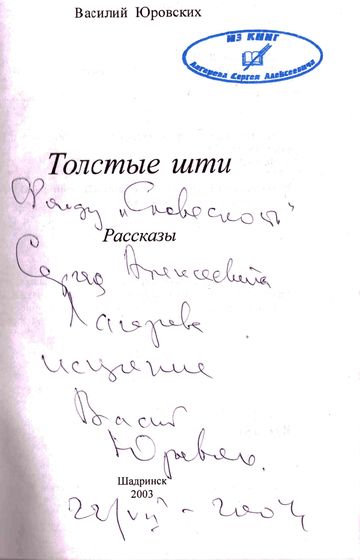 Василий Юровских
ИЗ КНИГ
Агарева Сергея Алексеевича
Толстые шти
Фонду „Словесность"
Рассказы
Сергея Алексеевича
Агарева
искренне
Васил
Юровских.
Шадринск
2003
22/VII - 2004